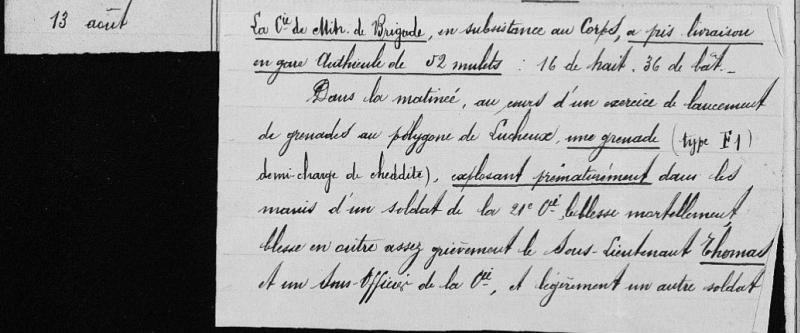 13 août
La Cie de Mitr. de Brigade, en subsistance au Corps, a pris livraison
en gare Authieule de 52 mulets : 16 de trait. 36 de bât._
Dans la matineé, au cours d'un exercice de lancement
de grenades au polygone de Lucheux, une grenade (type F1)
demi-charge de cheddite), explosant prématurément dans les
mains d'un soldat de la 21e Cie, le blesse mortellement,
blesse en outre assez grièvement le Sous-Lieutenant Thomas
et un Sous-Officier de la Cie, et légèrement un autre soldat